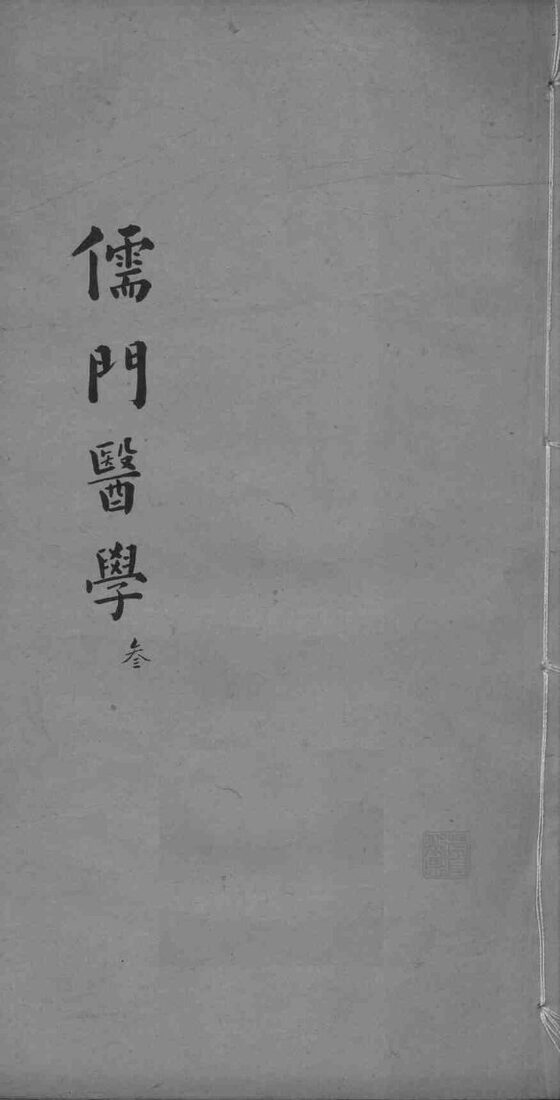 儒門醫學
叁